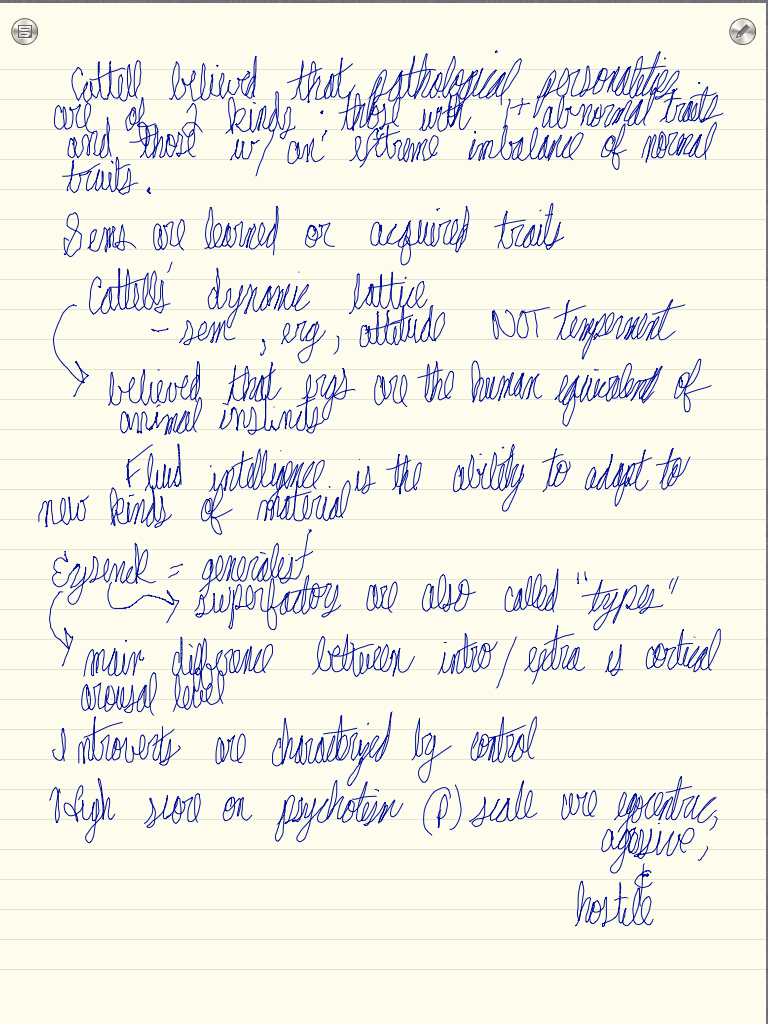 Cattell believed that pathological personalities
are of 2 kinds: those with 1+ abnormal traits
and those w/ an extreme imbalance of normal
traits.
Sems are learned or acquired traits
Cattell's dynamic lattice
- sem, erg, attitude NOT temperment
believed that ergs are the human equivalent of
animal instincts
Fluid intelligence is the ability to adapt to
new kinds of material
Eysenck = generalist
superfactors are also called "types"
main difference between intro/extra is cortical
arousal level
Introverts are characterized by control
High score on psychotism (P) scale are egocentric,
agossive,
&
hostile